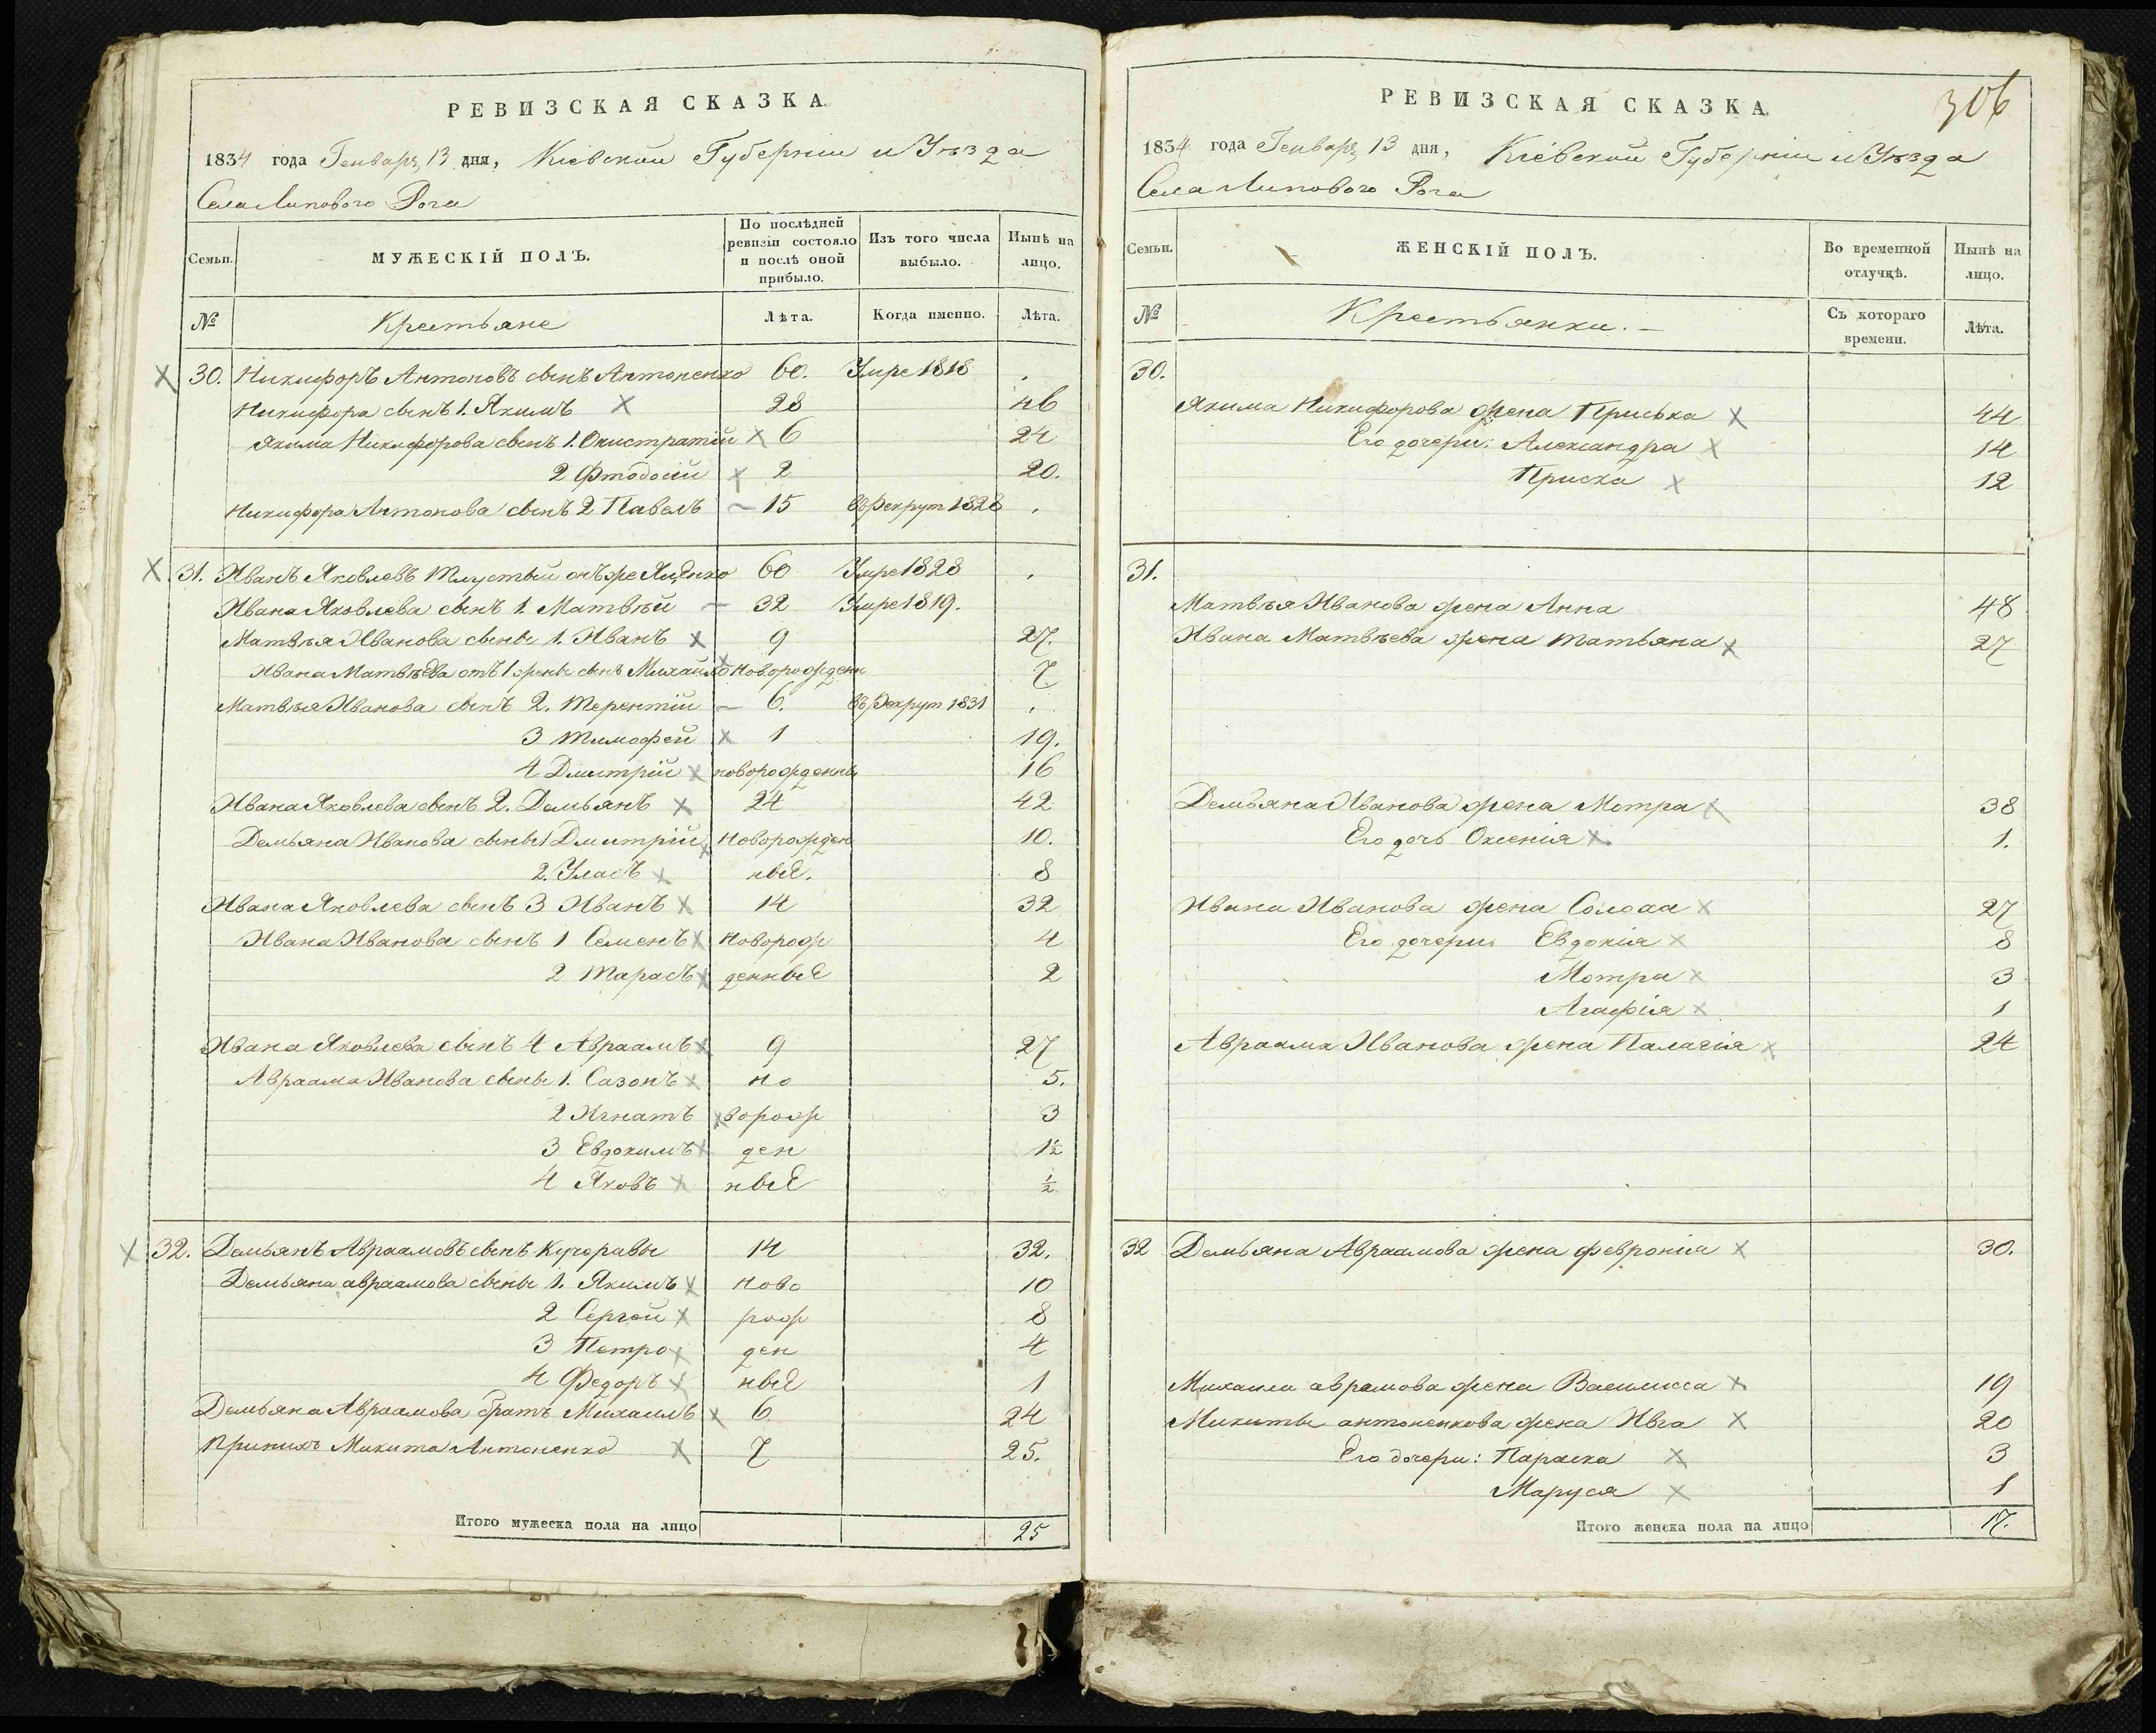 РЕВИЗСКАЯ СКАЗКА.
1834 года Генваря 13 дня, Кіевской Губерніи и Уѣзда
Села Липового Рога
Семьи. МУЖЕСКІЙ ПОЛЪ. По послѣдней ревизіи состояло и послѣ оной прибыло. Изъ того числа выбыло. Нынѣ на лицо.
№ Крестьяне Лѣта. Когда именно. Лѣта.
30. Никифоръ Антоновъ сынъ Антоненко 60. Умре 1818 .
Никифора сынъ 1. Якимъ 28 46
Якима Никифорова сынъ 1. Онистратій 6 24
2 Фтодосій 2 20.
Никифора Антонова сынъ 2 Павелъ 15 въ Рекрут 1828 .
31. Иванъ Яковлевъ Тлустый онъ же 60 Умре 1828 .
Ивана Яковлева сынъ 1. Матвѣй 32 Умре 1819.
Матвѣя Иванова сыны 1. Иванъ 9 27.
Ивана Матвѣева отъ 1 жены сынъ Михайло новорожден 7
Матвѣя Иванова сынъ 2. Терентій 6. въ Рекрут 1831 .
3 Тимофей 1 19.
4 Дмитрій новорожденны 16
Ивана Яковлева сынъ 2. Демьянъ 24 42
Демьяна Иванова сыны 1 Дмитрій Новорожден 10.
2. Уласъ ные. 8
Ивана Яковлева сынъ 3 Иванъ 14 32
Ивана Иванова сынъ 1 СеменъНоворож 4
2 Тарасъ денные 2
Ивана Яковлева сынъ 4 Авраамъ 9 27
Авраама Иванова сыны 1. Сазонъ но 5.
2 Игнатъ ворож 3
3 Евдокимъ ден 1½
4 Яковъ ные ½
32. Демьянъ Авраамовъ сынъ Кучеравы 14 32.
Демьяна авраамова сыны 1. Якимъ ново 10
2 Сергей рож 8
3 Петро ден 4
4 Федоръ ные 1
Демьяна Авраамова братъ Михаилъ 6 24
Микита Антоненко 7 25.
Итого мужеска пола на лицо 25
306
РЕВИЗСКАЯ СКАЗКА.
1834 года Генваря 13 дня, Кіевской Губерніи и Уѣзда
Села Липового Рога
Семьи. ЖЕНСКІЙ ПОЛЪ. Во временной отлучкѣ. Нынѣ на лицо.
№ Крестьянки. Съ котораго времени. Лѣта.
30.
Якима Никифорова жена Приська 44
Его дочери: Александра 14
Приска 12
31.
Матвѣя Иванова жена Анна 48
Ивана Матвѣева жена Татьяна 27
Демьяна Иванова жена Мотра 38
Его дочь Оксенія 1.
Ивана Иванова жена 27
Его дочери Евдокія 8
Мотра 3
Агафія 1
Авраама Иванова жена Палагія 24
32 Демьяна Авраамова жена Февронія 30.
Михаила аврамова жена Василисса 19
Микиты антоненкова жена Ивга 20
Его дочери: Параска 3
Маруся 1
Итого женска пола на лицо 17.